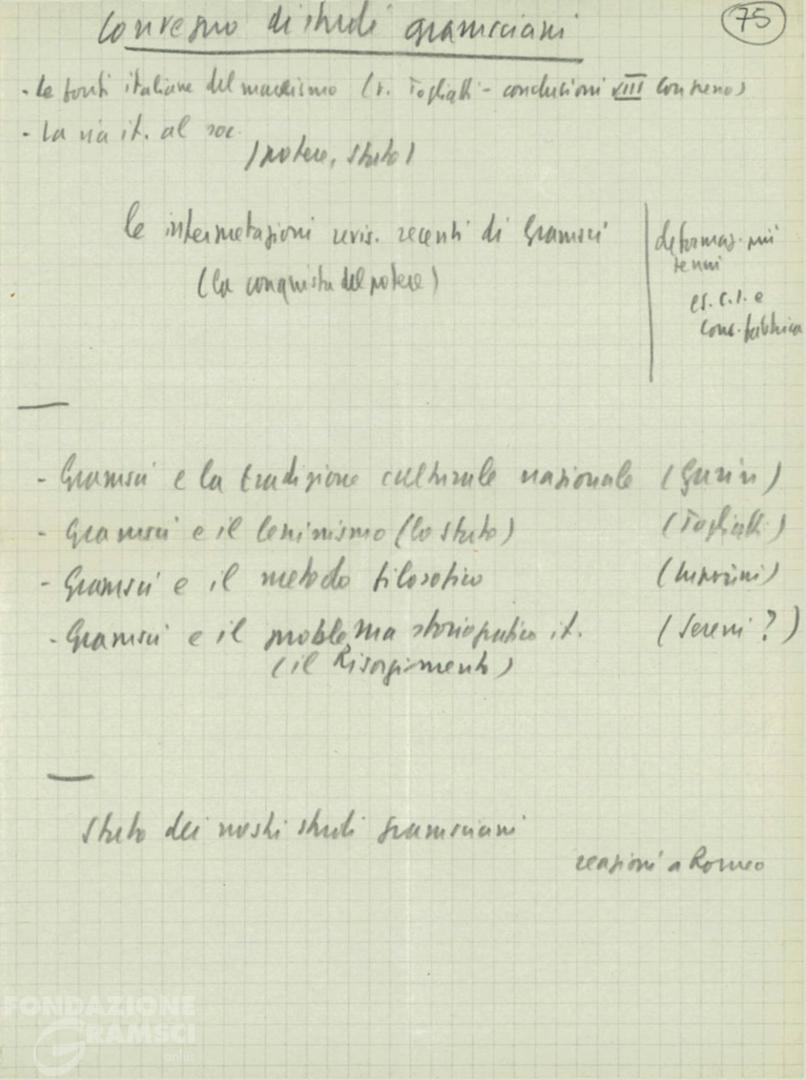 Convegno di studi gramsciani
75
- Le fonti italiane del marxismo (v. Togliatti - conclusioni VIII Congresso)
- La via it. al soc.
(potere, stato)
le interpretazioni revis. recenti di Gramsci
(la conquista del potere)
deformaz. più
tenui
es. c.i. e
cons. fabbrica
- Gramsci e la tradizione culturale nazionale (Garin)
- Gramsci e il leninismo (lo stato) (Togliatti)
- Gramsci e il metodo filosofico (Luporini)
- Gramsci e il problema storiopolitico it. (Sereni?)
(il Risorgimento)
Stato dei nostri studi gramsciani
reazioni a Romeo
FONDAZIONE
GRAMSCI
onlus